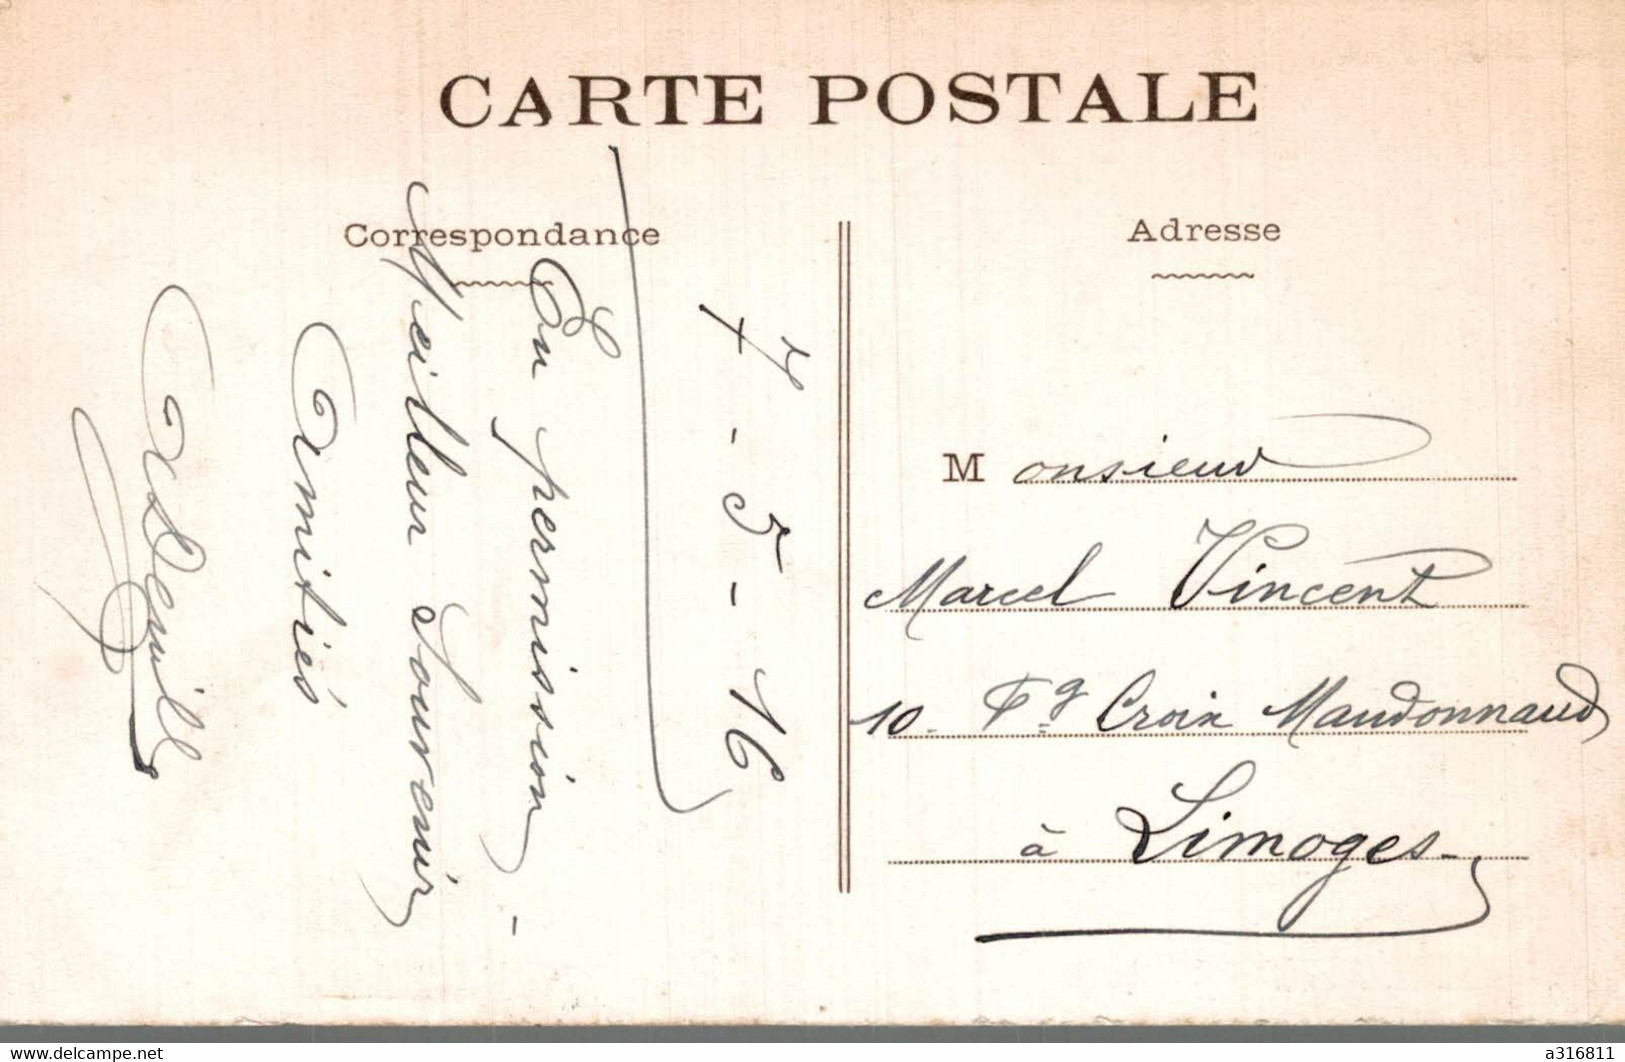 CARTE POSTALE
Correspondance
7-5-16
En permission -
Meilleur Souvenir
Amitiés
Adresse
Monsieur
Marcel Vincent
10. Fg Croix Mandonnaud
à Limoges
delcampe.net
a316811